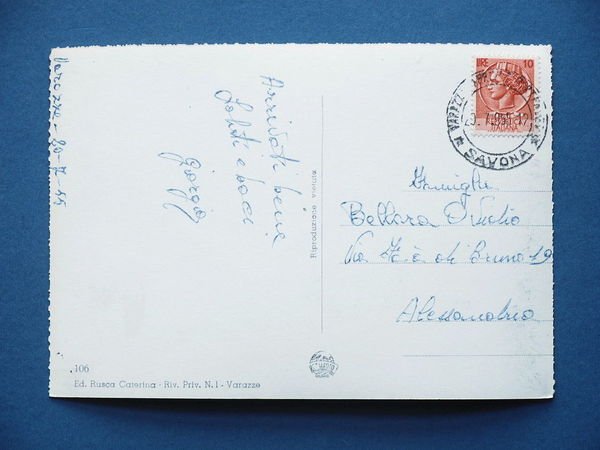 Varazze - 20-7-55
Arrivati bene
Saluti e baci
Giorgio
Riproduzione vietata
LIRE 10
ITALIANA
VARAZZE
SAVONA
Famiglia
Bellora
Via
di Bruno 19
Alessandria
106
Ed. Rusca Caterina - Riv. Priv. N. 1 - Varazze